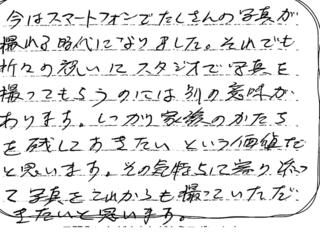 今はスマートフォンでたくさんの写真が
撮れる時代になりました。それでも
折々の祝いにスタジオで写真を
撮ってもらうのには別の意味が
あります。しっかり家族のかたち
を残しておきたいという価値だ
と思います。その気持ちに寄り添っ
て写真をこれからも撮っていただ
きたいと思います。